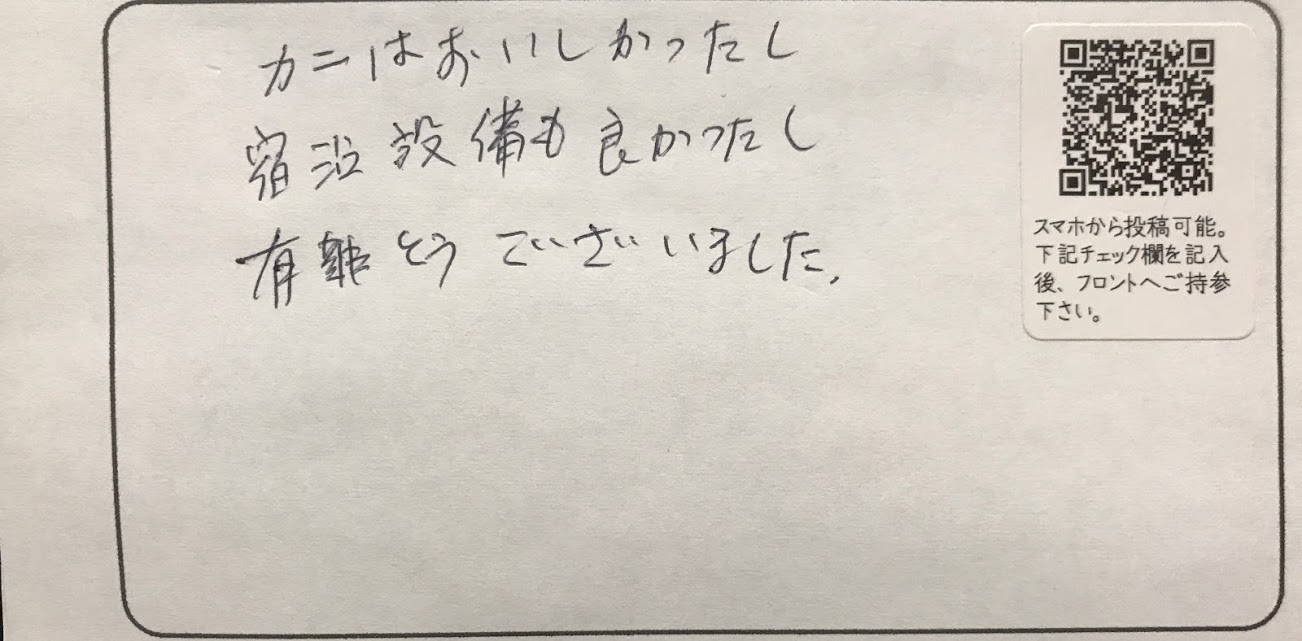 カニはおいしかったし
宿泊設備も良かったし
有難とうございました.
スマホから投稿可能。
下記チェック欄を記入
後、フロントへご持参
下さい。